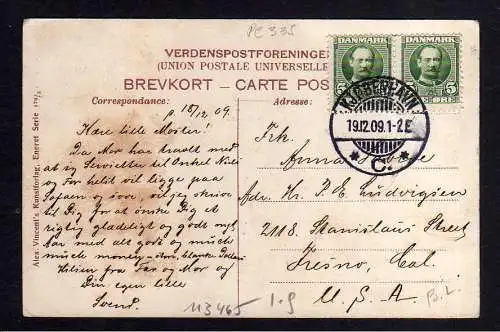 PC 335
VERDENSPOSTFORENINGEN
(UNION POSTALE UNIVERSELLE
BREVKORT – CARTE POS
DANMARK
DANMARK
5
ØRE
KJØBENHAVN
19.12.09.1-2E
Correspondance:
Adresse:
18/12 09.
Kære lille Moster!
Da Mor har travlt med
at sy Servietter til Onkel Niels
og Far helst vil ligge paa
Sofaen og sove, vil jeg skrive
til Dig for at ønske Dig et
rigtig glædeligt og godt nyt
aar med alt godt og much
much money – store, blanke Dollars
Hilsen fra Far og Mor og
Din egen lille
Svend.
Frk.
Anna
Adr. Hr. P. E. Ludvigsen
2118 Stanislaus Street
Fresno, Cal.
U. S. A.
Alex. Vincent's Kunstforlag. Eneret Serie
113465